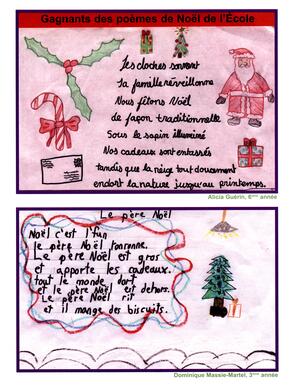 Gagnants des poèmes de Noël de l'École
Les cloches sonnent
La famille réveillonne
Nous fêtons Noël
de façon traditionnelle
Sous le sapin illuminé
Nos cadeaux sont entassés
tandis que la neige tout doucement
endort la nature jusqu'au printemps.
Alicia Guérin, 6ème année
Le père Noël
Noël c'est l'fun
le père Noël ronronne.
Le père Noël est gros
et apporte les cadeaux.
tout le monde dort
et le père Noël est dehors.
Le père Noël rit
et il mange des biscuits.
Dominique Massie-Martel, 3ème année